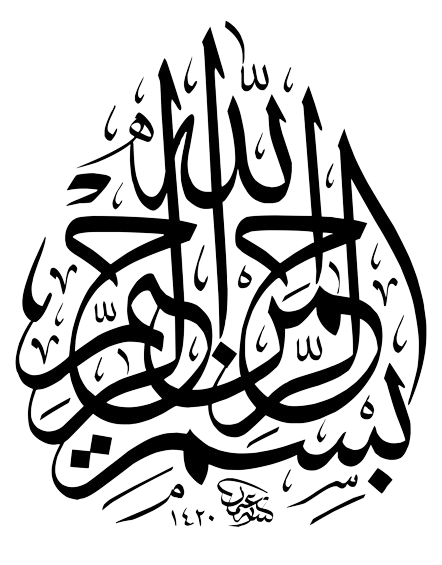 بسم الله الرحمن الرحيم
١٤٢٠